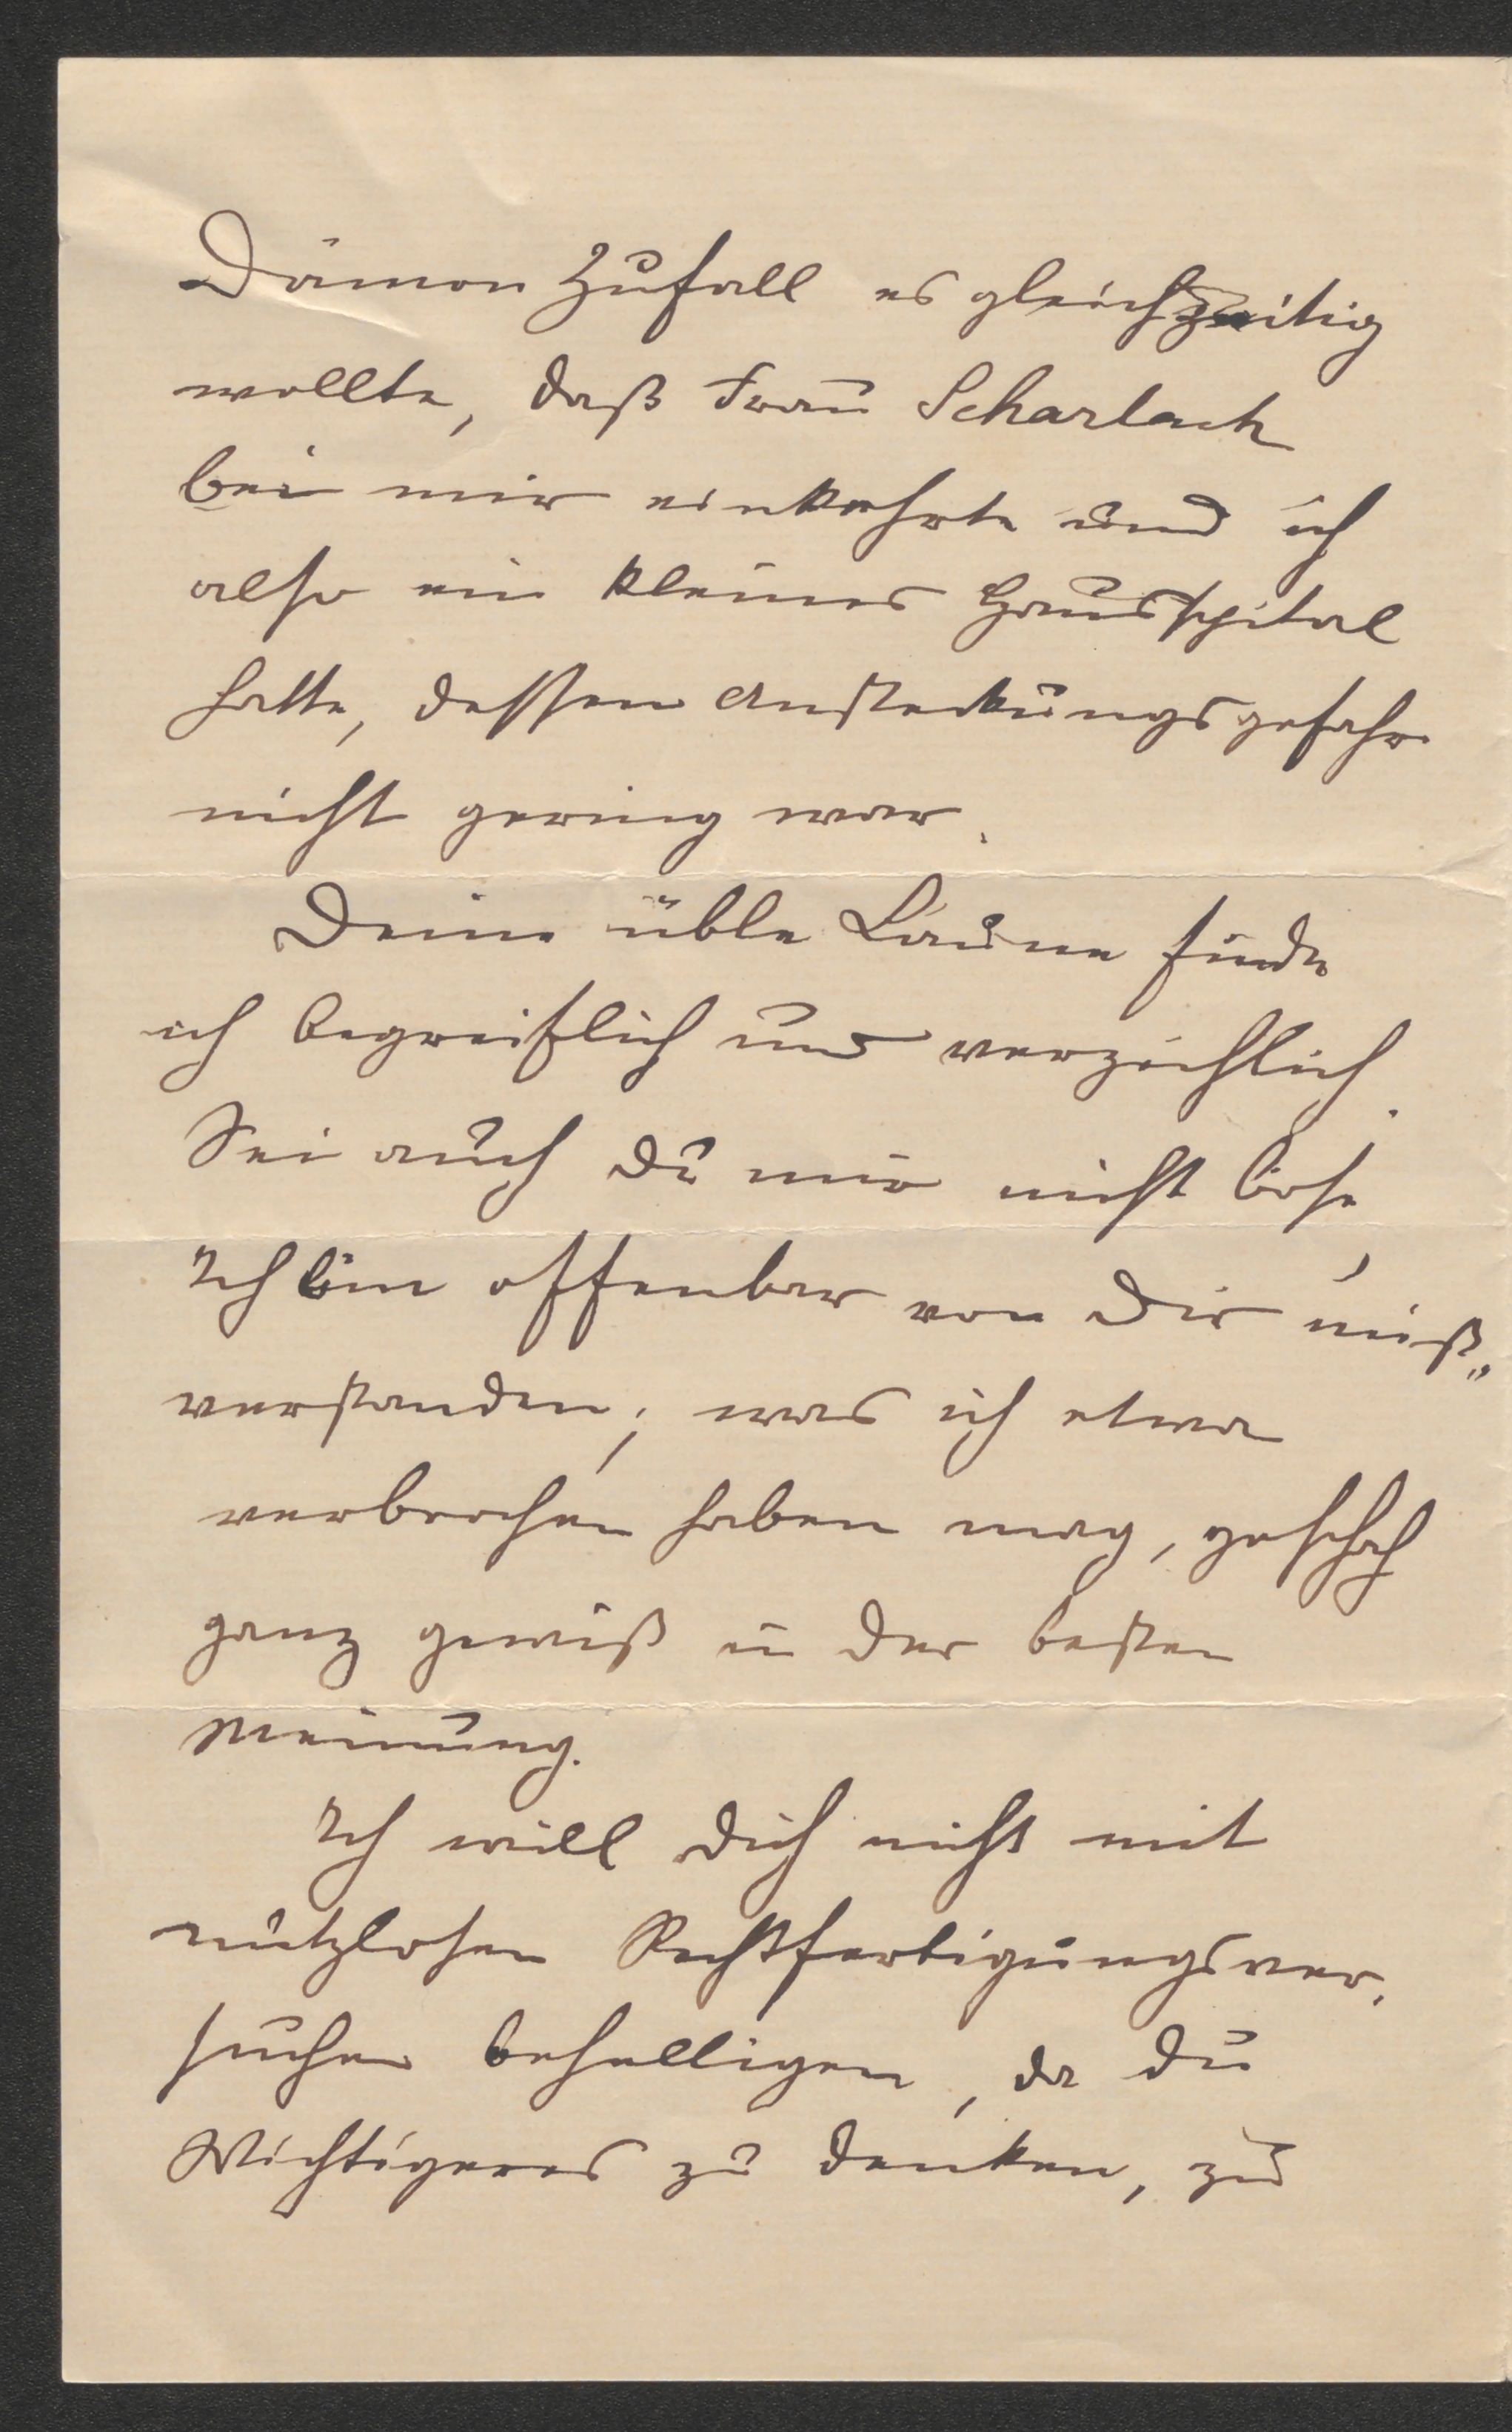 Dämon Zufall es gleichzeitig
wollte, daß Frau Scharlach
bei mir einkehrte und ich
also ein kleines Hausspital
hatte, dessen Ansteckungsgefahr
nicht gering war.
Deine üble Laune finde
ich begreiflich und verzeihlich.
Sei auch Du mir nicht böse,
Ich bin offenbar von Dir miß„
verstanden; was ich etwa
verbrochen haben mag, geschah
ganz gewiß in der besten
Meinung.
Ich will Dich nicht mit
nutzlosen Rechtfertigungsver„
suchen behelligen, da Du
Wichtigeres zu denken, zu